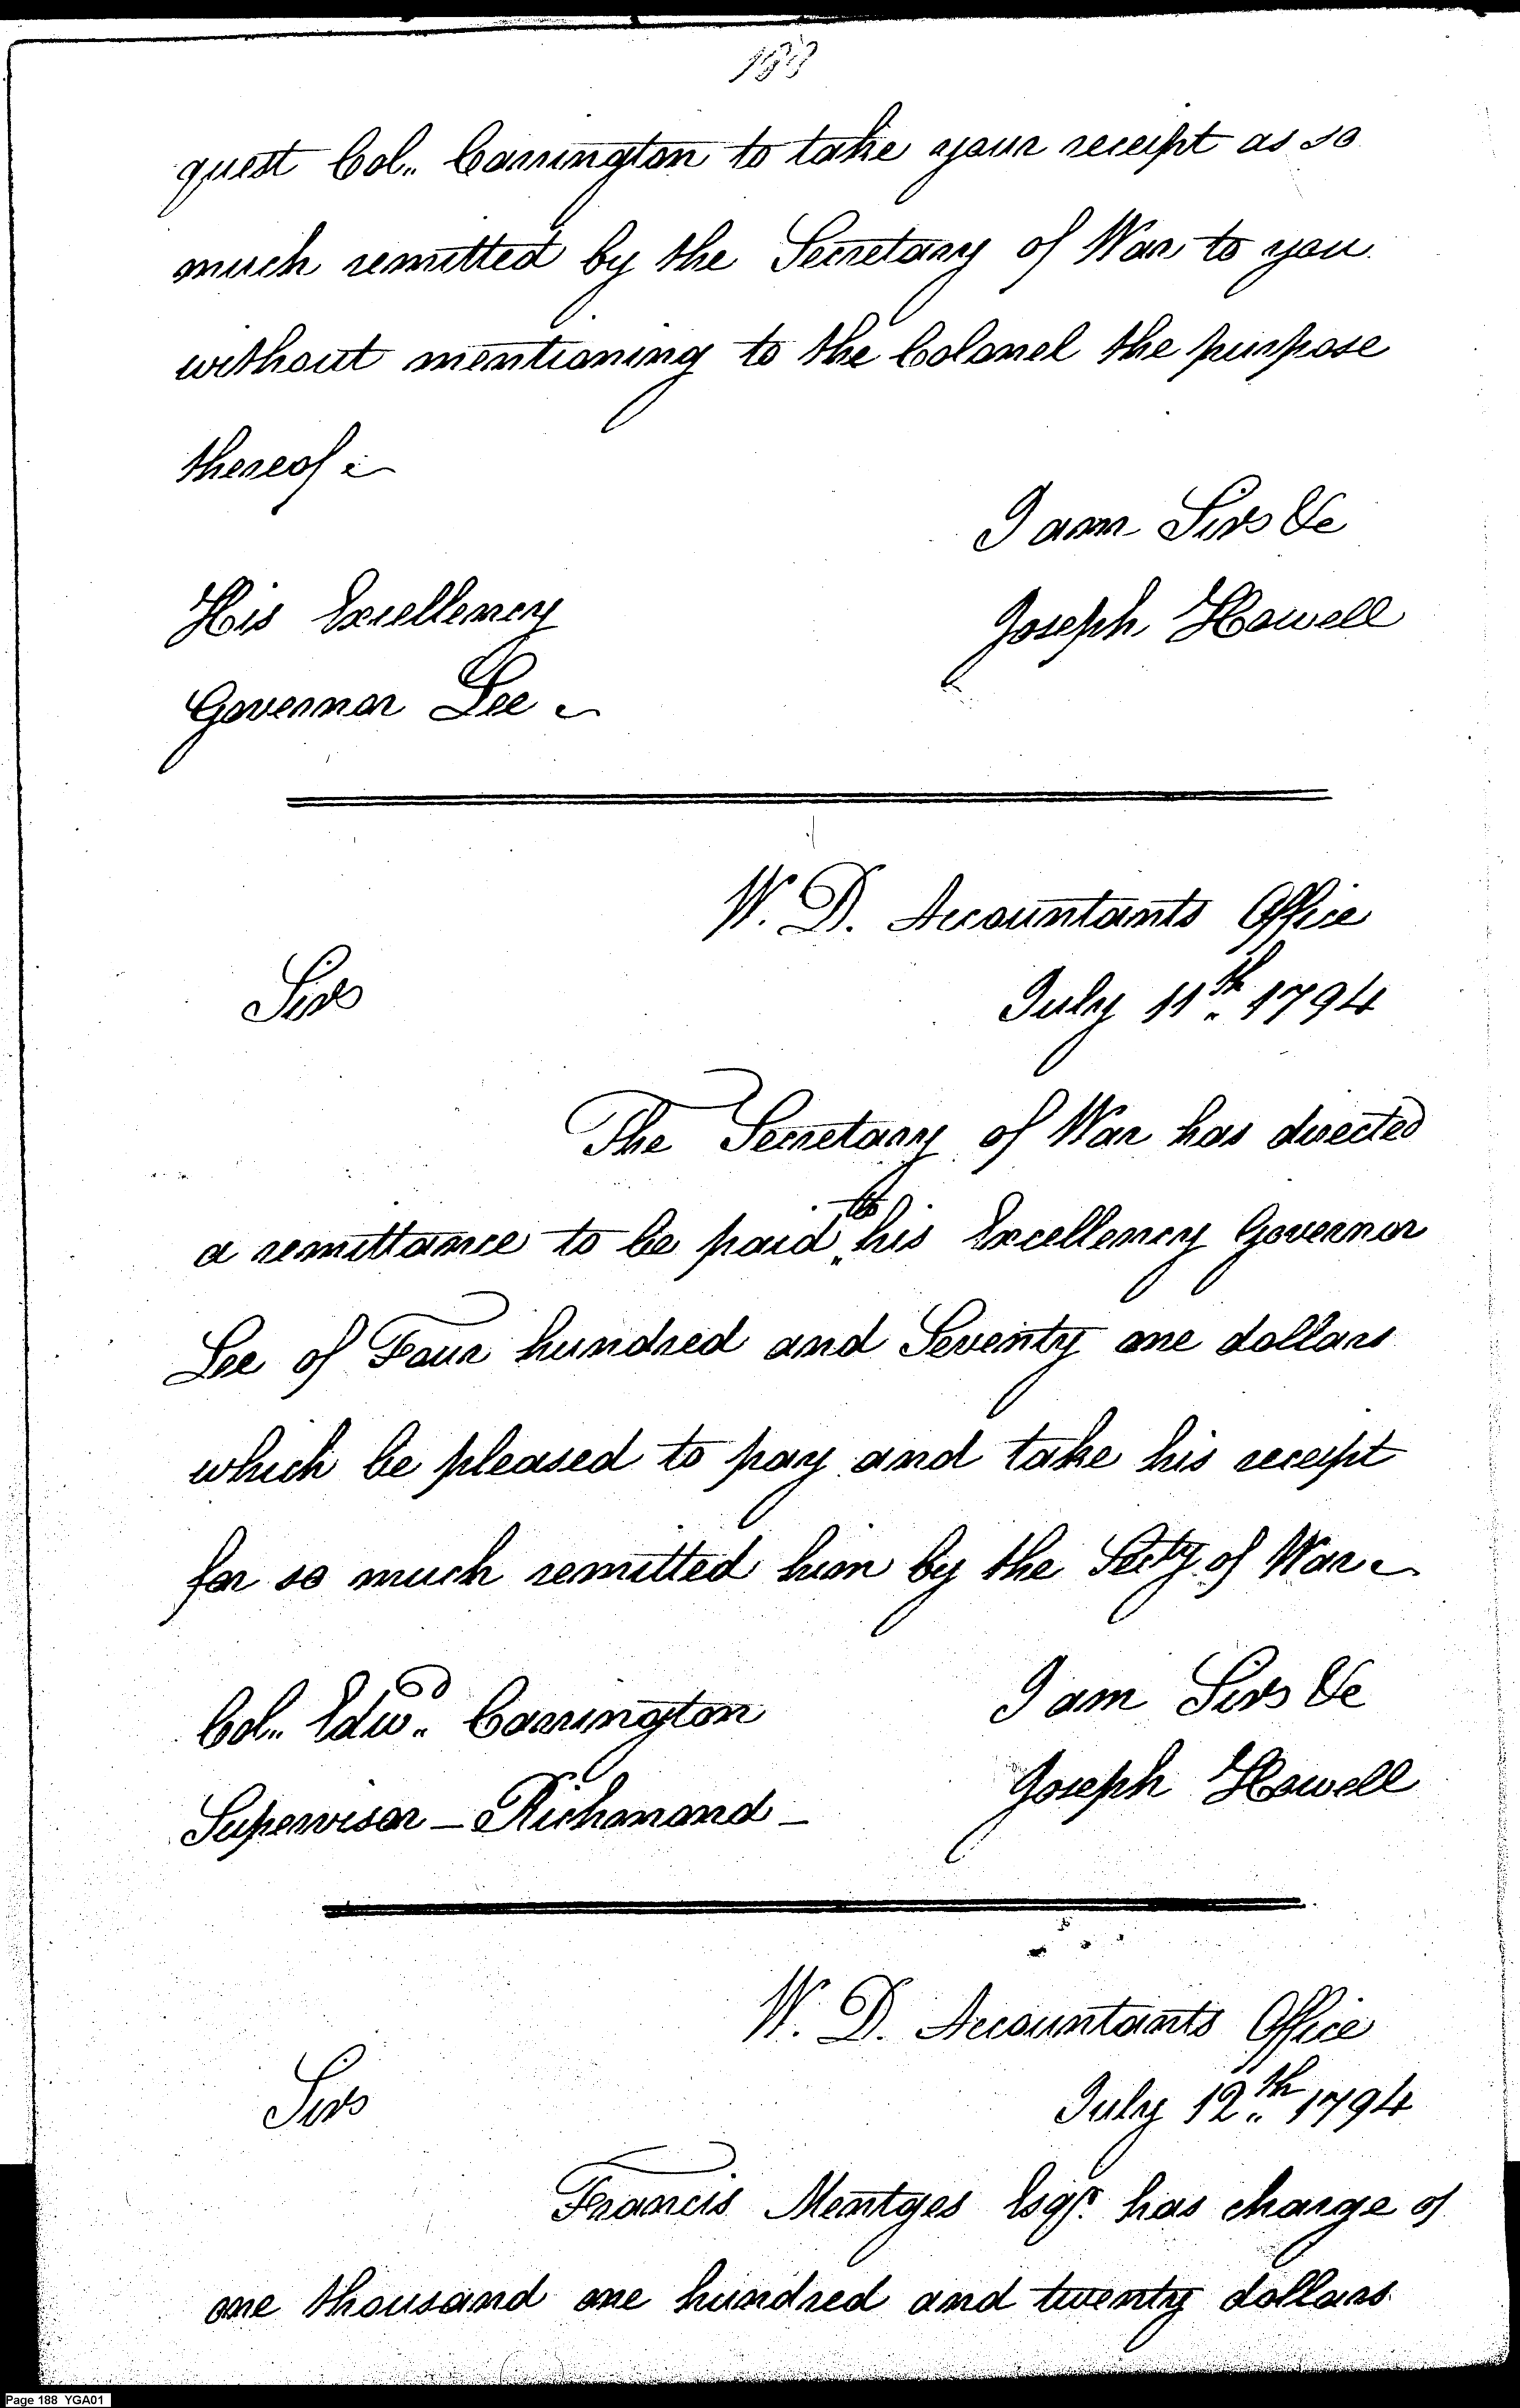 188
quest Col.. Carrington to take your receipt as so
much remitted by the Secretary of War to you
without mentioning to the Colonel the purpose
thereof
I am Sir &c
His Excellency
Joseph Howell
Governor Lee
W. D. Accountants Office
Sir
July 11th 1794
The Secretary of War has directed
a remittance to be paid to his Excellency Governor
Lee of Four hundred and Seventy one dollars
which be pleased to pay and take his receipt
for so much remitted him by the Secty of War
I am Sir &c
Col.. Edwd. Carrington
Joseph Howell
Supervisor – Richmond –
W. D. Accountants Office
Sir
July 12th 1794
Francis Mentges Esqr. has charge of
one thousand one hundred and twenty dollars
Page 188 YGA01